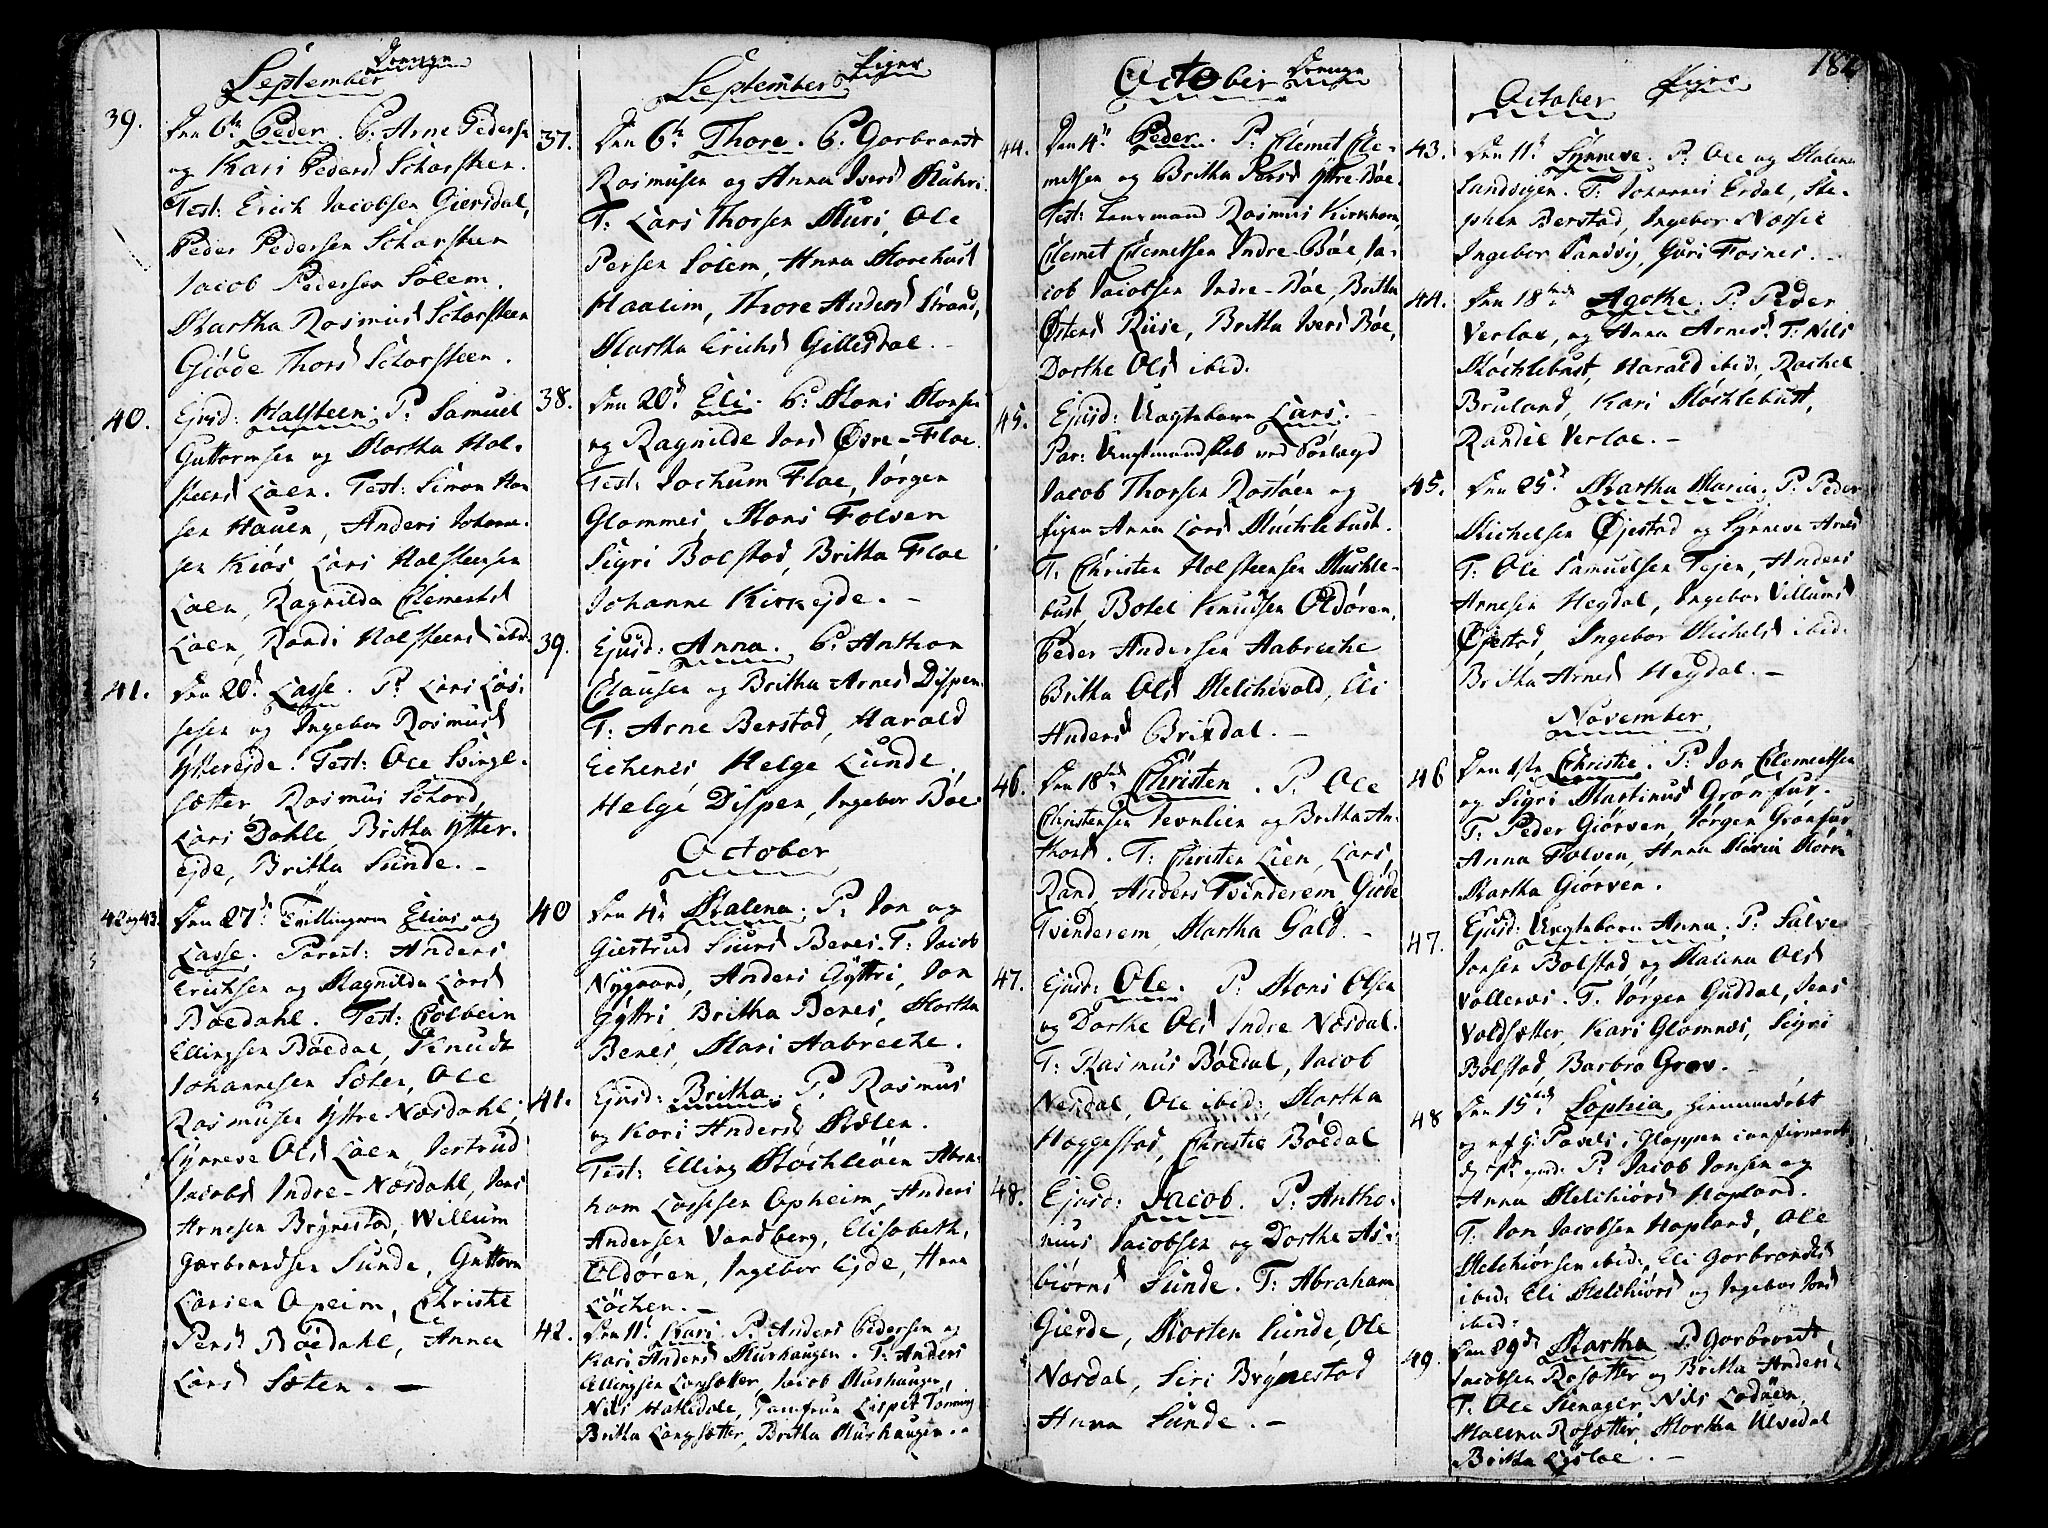 September Drenge
39. Den 6te Peder. P. Arne Peders:
og Kari Peders Scharsteen.
Test: Erich Jacobsen Giersdal,
Peder Pedersen Scharsteen
Jacob Pedersen Solem.
Martha Rasmus Scharsteen
Giøde Thors Scharsteen.
40. Ejusd: Halsteen. P. Samuel
Guttormsen og Martha Hal-
steens Loen. Test: Simon Han
sen Hauen, Anders Johanne-
sen Kiøs Lars Halsteensen
Loen, Ragnilda Clements
Loen, Randi Halsteens ibid.
41. Den 20d Lasse. P. Lars Las-
sesen og Ingebor Rasmus
Ytterejde. Test: Ole Svingl-
sætter, Rasmus Schord
Lars Dahle, Britha Ytter-
ejde, Britha Sunde. -
42 og 43. Den 27d Tvillingerne Elias og
Lasse. Parent: Anders
Erichsen og Magnilda Lars
Bøedahl. Test: Colbein
Ellingsen Bøedal, Knudt
Johannesen Sæten, Ole
Rasmusen Yttre Næsdahl,
Synneve Ols Loen, Jertrud
Jacobs Indre-Næsdahl, Jens
Arnesen Brynestad, Willum
Gørbrandsen Sunde, Guttorm
Larsen Opeim, Christe
Pers Bøedahl, Anna
Lars Sæten. -
September Piger
37. Den 6te Thore. P. Gorbrandt
Rasmusen og Anna Ivers Muhri.
T: Lars Thorsen Muri, Ole
Persen Solem, Anna Storehus
Maalim, Thore Anders Strand,
Martha Erichs Gillesdal. -
38. Den 20d Eli. P. Mons Monsen
og Ragnilde Jons Øvre-Floe.
Test: Jochum Floe, Jørgen
Glommes, Mons Folven
Sigri Bolstad, Britha Floe
Johanne Kirkejde. -
39. Ejusd: Anna. P. Anthon
Clausen og Britha Arnes Dispen.
T: Arne Berstad, Harald
Eichenes Helge Lunde
Helge Dispen, Ingebor Bøe
October
40 Den 4de Malena. P. Jon og
Giertrud Siurs Benes. T: Jacob
Nygaard, Anders Gyttri, Jon
Gyttri, Britha Benes, Martha
Benes, Mari Aabrecke.
41. Ejusd: Britha. P. Rasmus
og Kari Anders Mælen.
Test: Elling Mochleøen Abra-
ham Lassesen Opheim, Anders
Andersen Vandberg, Elisabeth
Oldøren, Ingebor Ejde, Anna
Løchen. -
42. Den 11te Kari. P. Anders Pedersen og
Kari Anders Murhaugen. T: Anders
Ellingsen Langsætter, Jacob Murhaugen,
Nils Halledale, Lispet Tonning
Britha Langsætter, Britha Murhaugen. -
October Drenge
44. Den 4de Peder. P. Clemet Cle-
metsen og Britha Pers Yttre-Bøe.
Test: Lensmand Rasmus Kirkhorn,
Clemet Clemetsen Indre-Bøe, Ja-
cob Jacobsen Indre-Bøe, Britha
Østens Riise, Britha Ivers Bøe,
Dorthe Ols ibid.
45. Ejusd: Uægtebarn Lars. -
Par: Ungmandskab ved Søelagd
Jacob Thorsen Rostøen og
Pigen Anna Lars Mochlebust.
T: Christen Halsteensen Muchle-
bust, Botel Knudsen Oldøren,
Peder Andersen Aabrecke
Britha Ols Melchevold, Eli
Anders Brixdal. -
46. Den 18de Christen. P. Ole
Christensen Tevnlien og Britha An-
thons. T: Christen Lien, Lars
Rand, Anders Tvinderem, Giøde
Tvinderem, Martha Gald. -
47. Ejusd: Ole. P. Mons Olsen
og Dorthe Ols Indre Næsdal.
T: Rasmus Bøedal, Jacob
Nesdal, Ole ibid: Martha
Haggestad, Christie Bøedal
48. Ejusd: Jacob. P. Antho-
nius Jacobsen og Dorthe As-
biørns Sunde. T: Abraham
Gierde, Morten Sunde, Ole
Nordal, Siri Brynestad
Anna Sunde. -
October Piger
43. Den 11te Synneve. P. Ole og Malena
Sandvigen. T. Johannes Erdal, Ste-
phen Berstad, Ingebor Næsse
Ingebor Sandvig, Guri Fosnes. -
44. Den 18de Agathe. P. Peder
Verlae, og Anna Arnes. T: Nils
Mochlebust, Harald ibid:, Rachel
Bruland, Kari Mochlebust,
Randie Verloe. -
45. Den 25d Martha Maria. P. Peder
Michelsen Øjestad og Synneve Arnes
T: Ole Samuelsen Tejen, Anders
Arnesen Hegdal, Ingebor Villums
Øjestad, Ingebor Michels ibid:
Britha Arnes Hegdal. -
November
46 Den 1ste Christie. P. Jon Clemetsen
og Sigri Martinus Grønfur.
T: Peder Giørven, Jørgen Gronfur
Anna Folven, Anna Maria
Martha Giørven.
47. Ejusd: Uægtebarn Anna. P. Salve
Jonsen Bolstad og Malena Ols
Vollenes. T. Jørgen Guddal, Jens
Voldsætter, Kari Glomnæs, Sigri
Bolstad, Barbro Grov. -
48 Den 15de Sophia, hiemmedøbt
og af i Gloppen confirmeret
P. Jacob Jonsen og
Anna Melchiors Hopland.
T. Jon Jacobsen Hopland, Ole
Melchiorsen ibid:, Eli Gorbrandts
ibid: Eli Melchiors og Ingebor Jons
ibid:
49. Den 29d Martha P. Gorbrandt
Jacobsen Rosætter og Britha Anders.
T. Ole Stenager, Nils Lødøen,
Malena Rosætter, Martha Ulvedal
Britha Lysloe. -